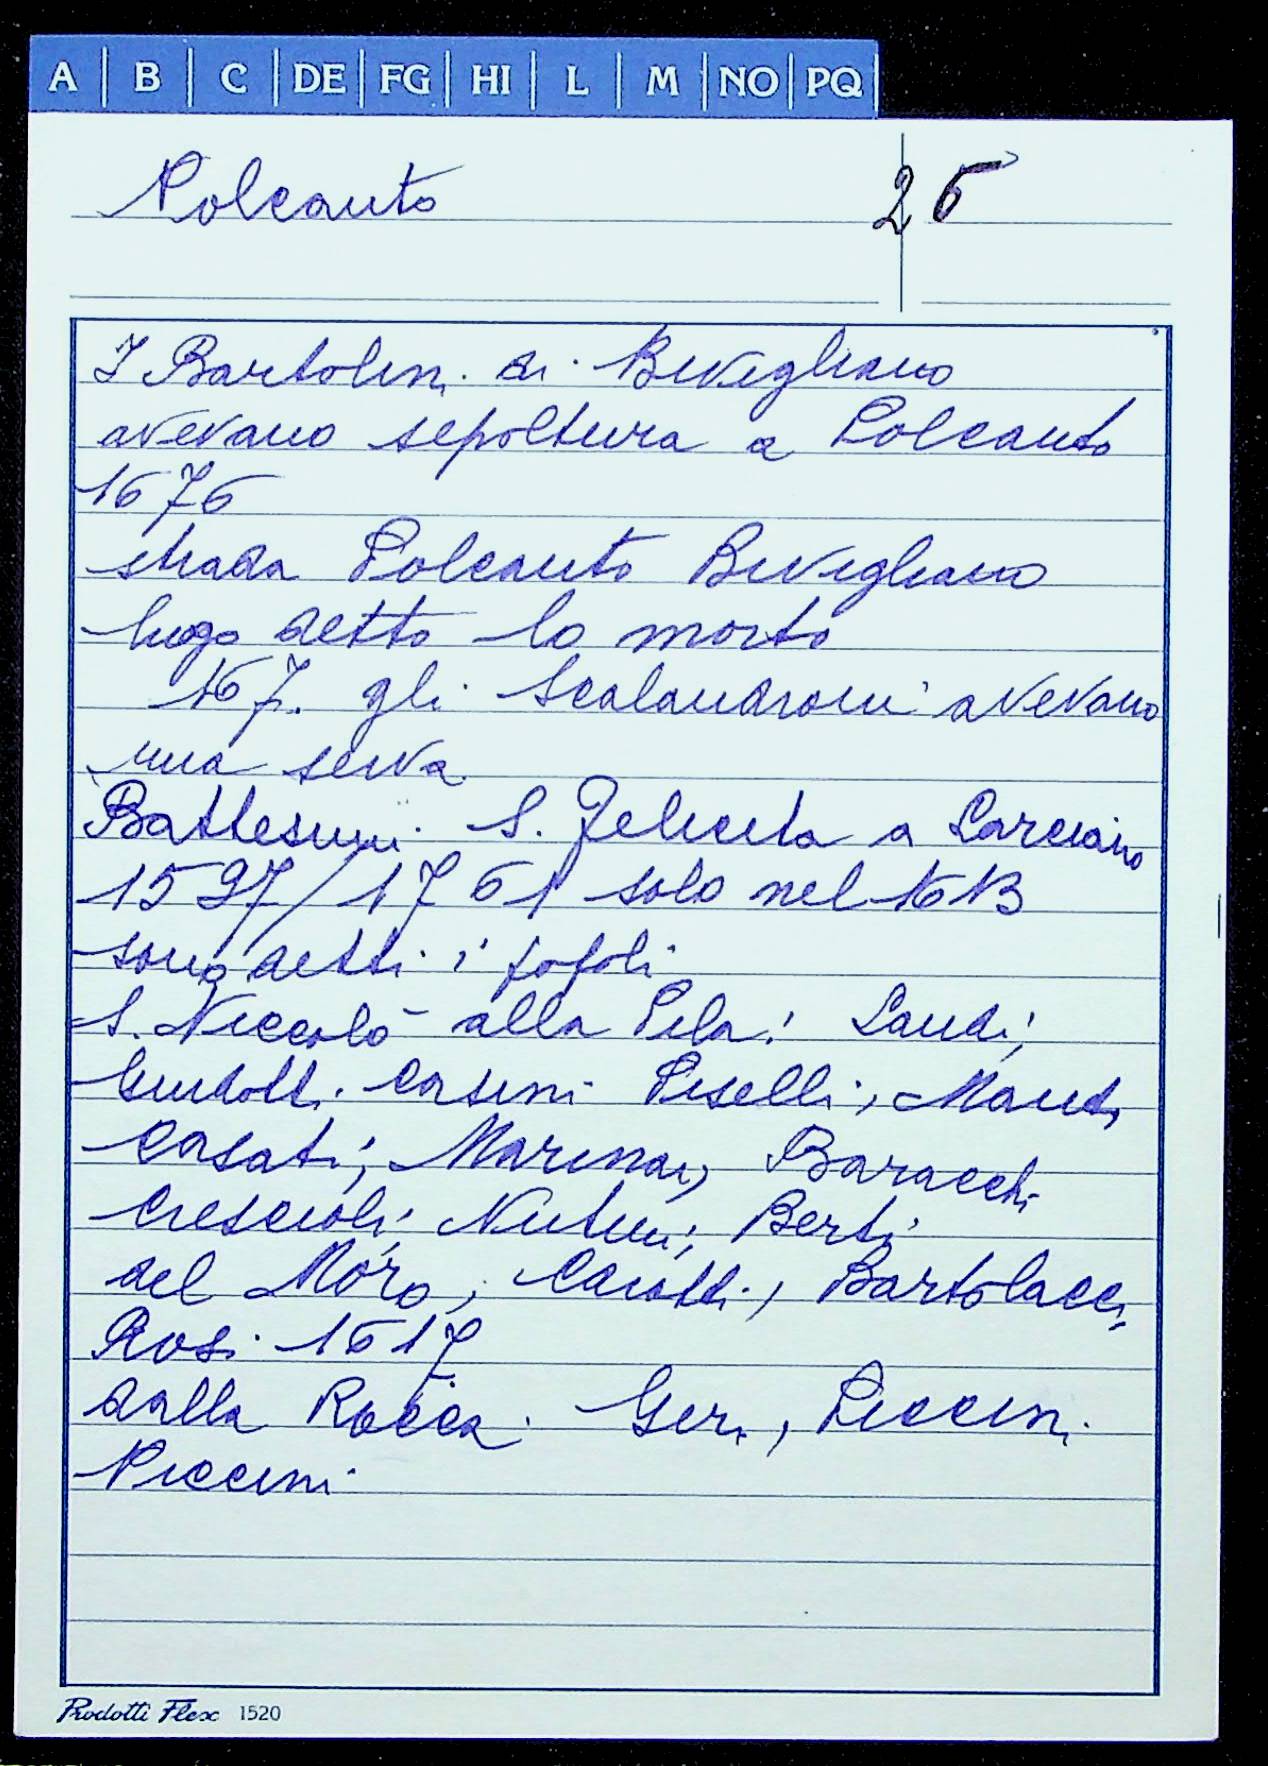 A B C DE FG HI L M NO PQ
Polcanto 25
I Bartolini di Bivigliano
avevano sepoltura a Polcanto
1676
strada Polcanto Bivigliano
luogo detto lo morto
167. gli Scalandroni avevano
una serva
Battesimi S. Felicita a Larciano
1597/1761 solo nel 1613
sono detti i popoli
S. Niccolò alla Pila: Landi;
Guidotti. Casini Piselli, Mandi
Casati; Marinai, Baracchi
Crescioli; Nutini; Berti
del Moro, Carotti, Bartolacci,
Rosi 1617
dalla Rocca. Geri, Piccini
Piccini
Prodotti Flex 1520